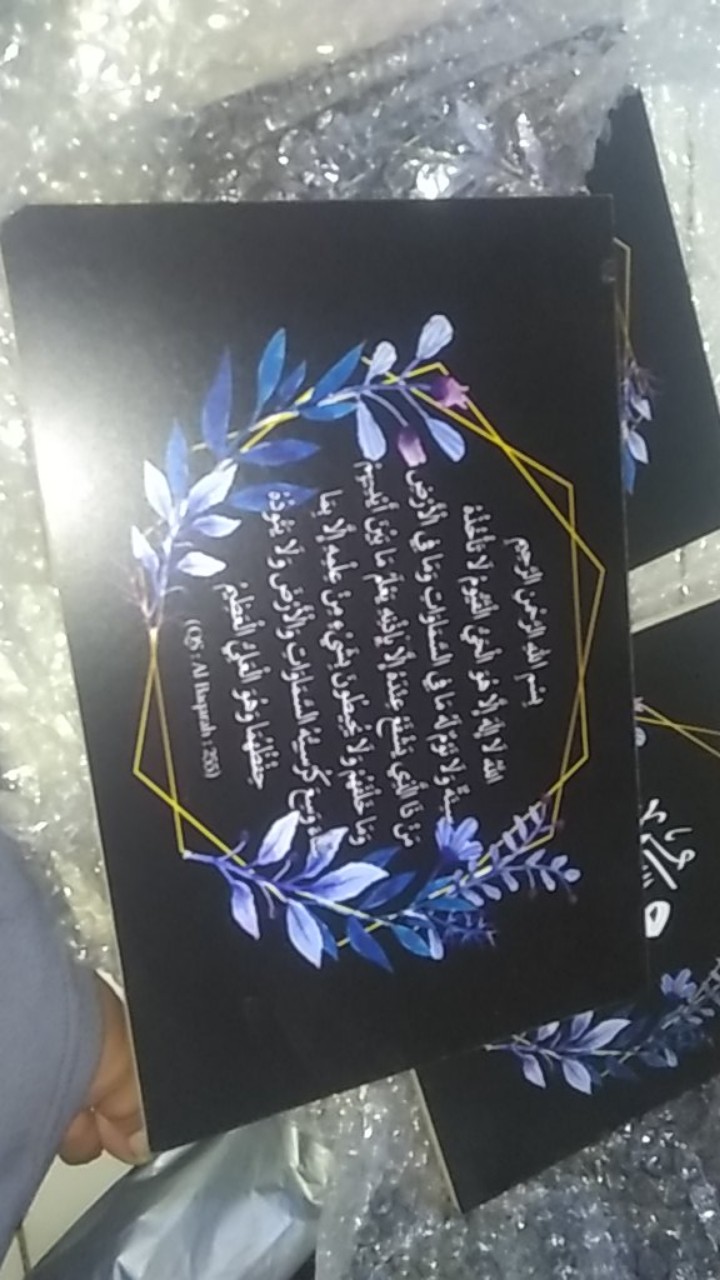 بِسْمِ اللهِ الرَّحْمٰنِ الرَّحِيْمِ
اللَّهُ لَا إِلَهَ إِلَّا هُوَ الْحَيُّ الْقَيُّومُ لَا تَأْخُذُهُ
سِنَةٌ وَلَا نَوْمٌ لَهُ مَا فِي السَّمَاوَاتِ وَمَا فِي الْأَرْضِ
مَنْ ذَا الَّذِي يَشْفَعُ عِنْدَهُ إِلَّا بِإِذْنِهِ يَعْلَمُ مَا بَيْنَ أَيْدِيهِمْ
وَمَا خَلْفَهُمْ وَلَا يُحِيطُونَ بِشَيْءٍ مِنْ عِلْمِهِ إِلَّا بِمَا
وَسِعَ كُرْسِيُّهُ السَّمَاوَاتِ وَالْأَرْضَ وَلَا يَئُودُهُ
حِفْظُهُمَا وَهُوَ الْعَلِيُّ الْعَظِيمُ
(QS : Al Baqarah : 255)